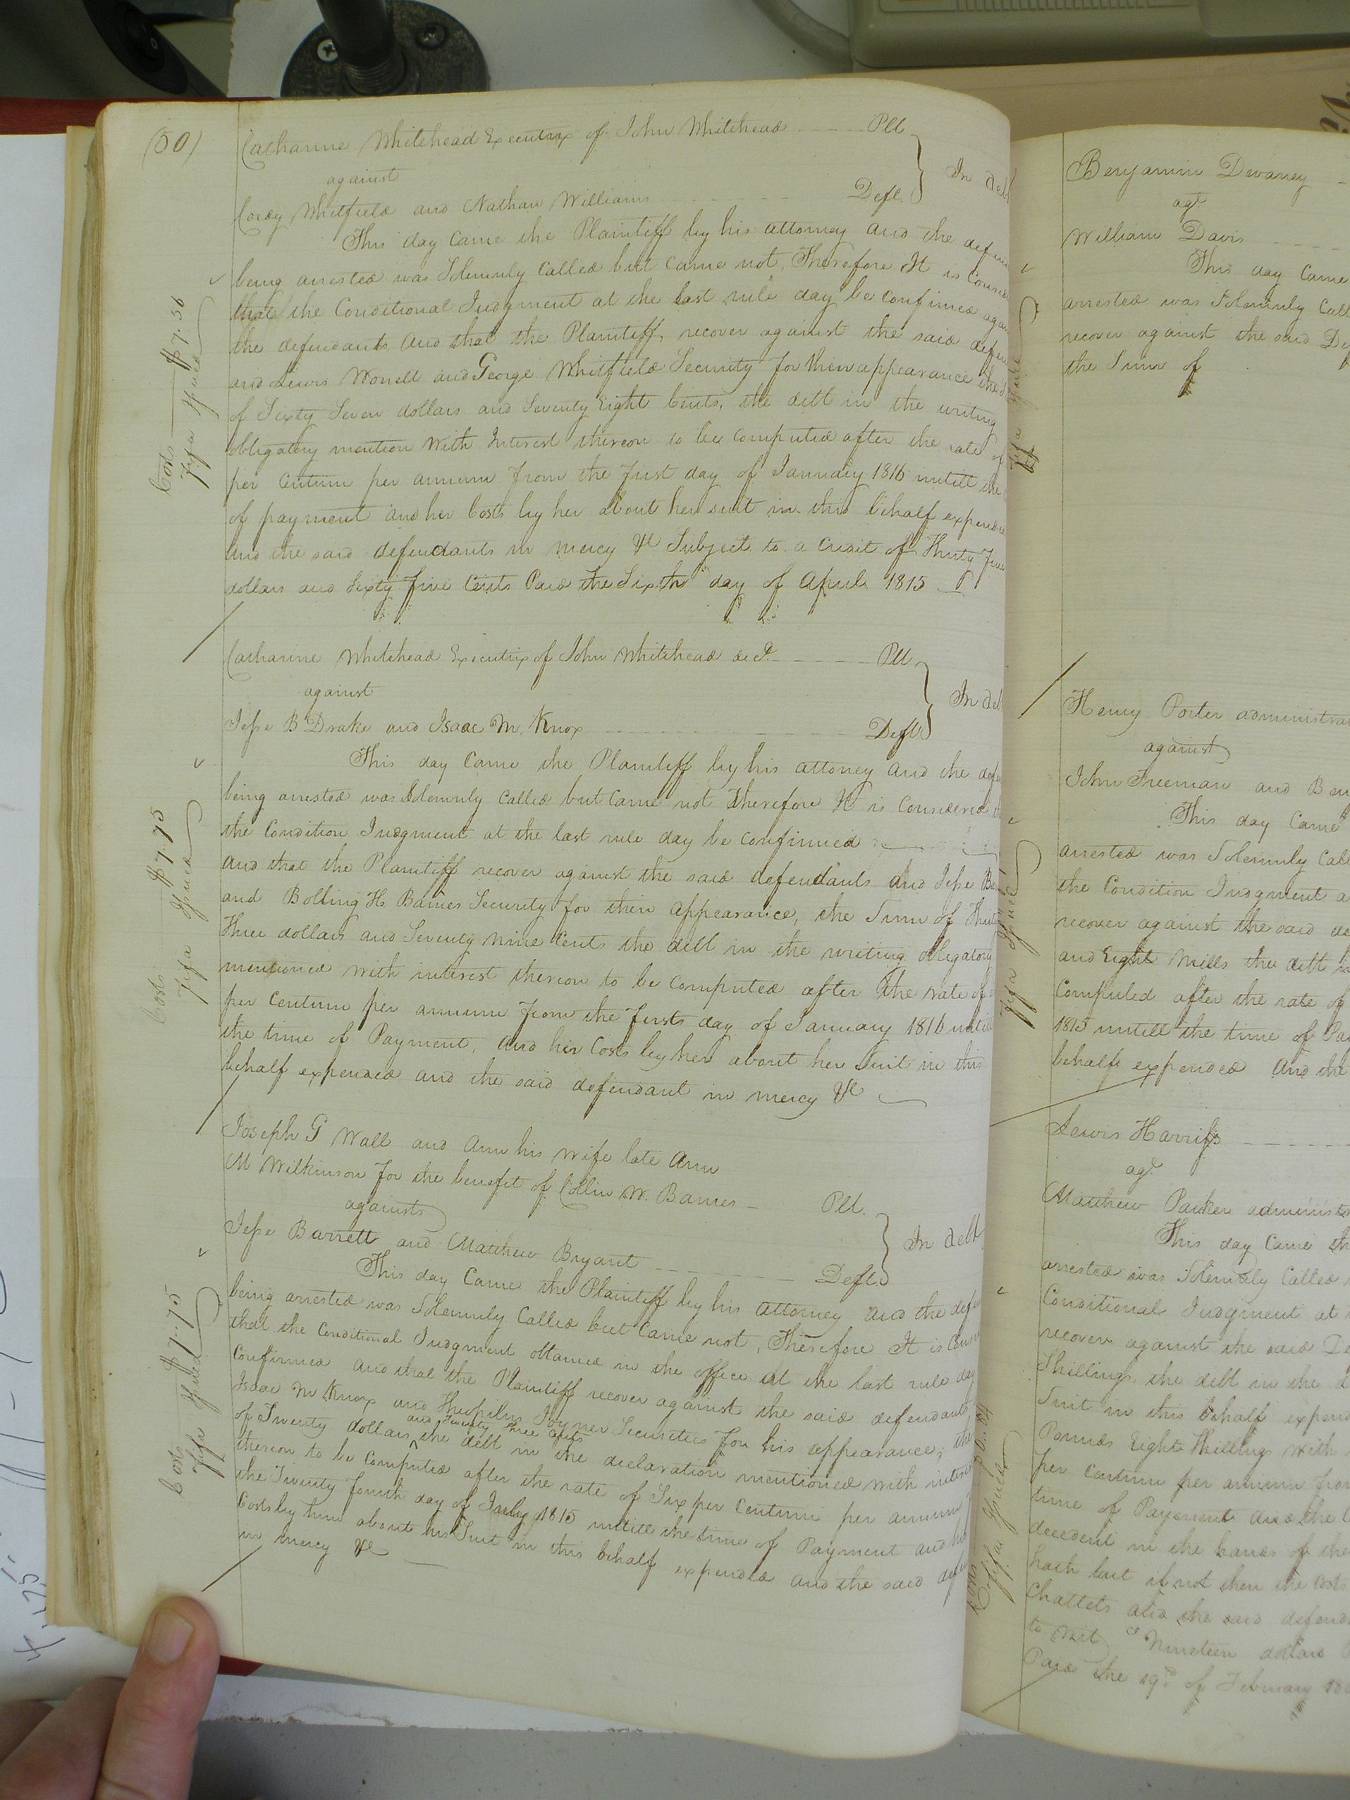 (50)
Catharine Whitehead Executrix of John Whitehead Plt
against In debt
Cordy Whitfield and Nathan Williams Deft
This day Came the Plaintiff by his attorney and the
being arrested was Solemnly Called but Came not, Therefore It is
that the Conditional Judgment at the last rule day be Confirmed
the defendants and that the Plaintiff, recover against the said
and Lewis and George Whitfield Security for their appearance
of Sixty Seven dollars and Seventy Eight Cents, the debt in the writing
obligatory mention With Interest thereon to be Computed after the rate of
per Centum per annum from the First day of January 1816 untill the
of payment and her Costs by her about her suit in this behalf
and the said defendants in mercy &c Subject to a Credit of Thirty
dollars and Sixty five Cents Paid the Sixth day of April 1815
Costs $7.56
Fifa Issued
Catharine Whitehead Executrix of John Whitehead decd Plt
against In
Jesse B Drake and Isaac M. Knox Deft
This day Came the Plaintiff by his attorney and the
being arrested was Solemnly Called but Came not Therefore It is Considered
the Condition Judgment at the last rule day be Confirmed
and that the Plaintiff recover against the said defendants and Jesse
and Bolling H Barnes Security for their appearance, the Sum of
Three dollars and Seventy Nine Cents the debt in the writing obligatory
mentioned with interest thereon to be Computed after the rate of
per Centum per annum from the first day of January 1816 untill
the time of Payment, and her Costs by her about her Suit in this
behalf expended and the said defendant in mercy &c
Costs $7.75
Fifa Issued
Joseph G Wall and Ann his wife late Ann
M Wilkinson for the benefit of Collin W. Barnes Plt.
against In debt
Jesse Barrett and Matthew Bryant Deft
This day Came the Plaintiff by his attorney and the
being arrested was Solemnly Called but Came not, Therefore It is
that the Conditional Judgment obtained in the office at the last rule day
Confirmed and that the Plaintiff recover against the said defendants
Isaac M Knox and Joyner Securities for his appearance, the
and Twenty three Cents
of Twenty dollars the debt in the declaration mentioned with
thereon to be Computed after the rate of Six per Centum per annum
the Twenty fourth day of 1815 untill the time of Payment and
Costs by him about his Suit in this behalf expended and the said
in mercy &c
Costs $7.75
Fifa Issued
Benjamin Devaney
agt
William Davis
This day Came
arrested was Solemnly
recover against the said
the Sum of
Fifa
Henry Porter
against
John Freeman and
This day Came
arrested was Solemnly
the Condition Judgment
recover against the said
and Eight Mills the debt
Computed after the rate of
1815 untill the time of
behalf expended And the
Fifa Issued
Lewis Harriss
agt
Matthew Parker
This day Came
arrested was Solemnly Called
Conditional Judgment at
recover against the said
Shillings, the debt in the
Suit in this behalf
Pounds Eight Shillings with
per Centum per annum
time of Payment and the
decedent in the hands of the
hath but if not then the Costs
Chattels and the said
to wit Nineteen dollars
Paid the 19th of February
Costs
Fifa Issued